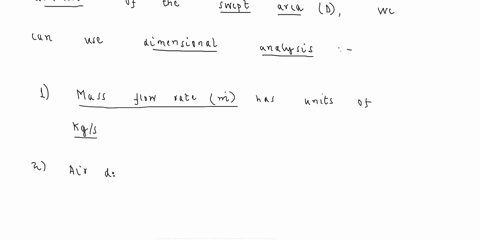 of the swept area (D), we
can use dimensional analysis :-
1) Mass flow rate (ṁ) has units of
Kg/s
2) Air d